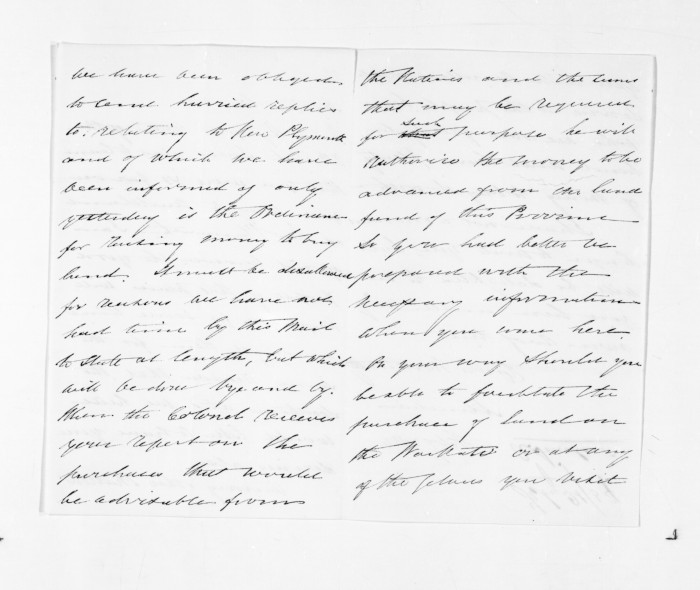 we have been obliged
to send hurried replies
to. relating to New Plymouth
and of which we have
been informed of only
yesterday is the Ordinance
for raising money to buy
land. It must be disallowed
for reasons we have not
had time by this Mail
to state at length, but which
will be done bye and by.
When the Colonel receives
your report on the
purchases that would
be advisable from
the Natives and the sums
that may be required
for such purpose he will
authorise the money to be
advanced from the land
fund of this Province
So you had better be
prepared with the
necessary information
when you come here.
On your way should you
be able to facilitate the
purchase of land on
the Waikato or at any
of the places you visit